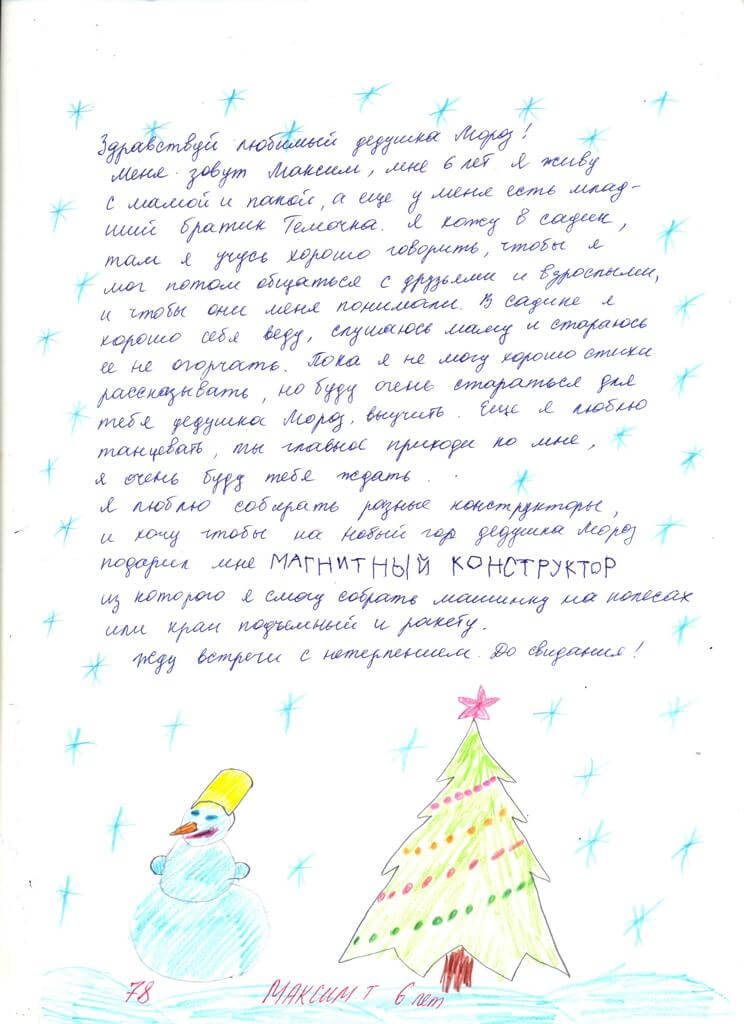 Здравствуй любимый дедушка Мороз!
Меня зовут Максим, мне 6 лет я живу
с мамой и папой, а еще у меня есть млад-
ший братик Темочка. Я хожу в садик,
там я учусь хорошо говорить, чтобы я
мог потом общаться с друзьями и взрослыми,
и чтобы они меня понимали. В садике я
хорошо себя веду, слушаюсь маму и стараюсь
ее не огорчать. Пока я не могу хорошо стихи
рассказывать, но буду очень стараться для
тебя дедушка Мороз, выучить. Еще я люблю
танцевать, ты главное приходи ко мне,
я очень буду тебя ждать.
Я люблю собирать разные конструкторы,
и хочу чтобы на Новый год дедушка Мороз
подарил мне МАГНИТНЫЙ КОНСТРУКТОР
из которого я смогу собрать машинку на колесах
или кран подъемный и ракету.
Жду встречи с нетерпением. До свидания!
78 МАКСИМ Т 6 лет